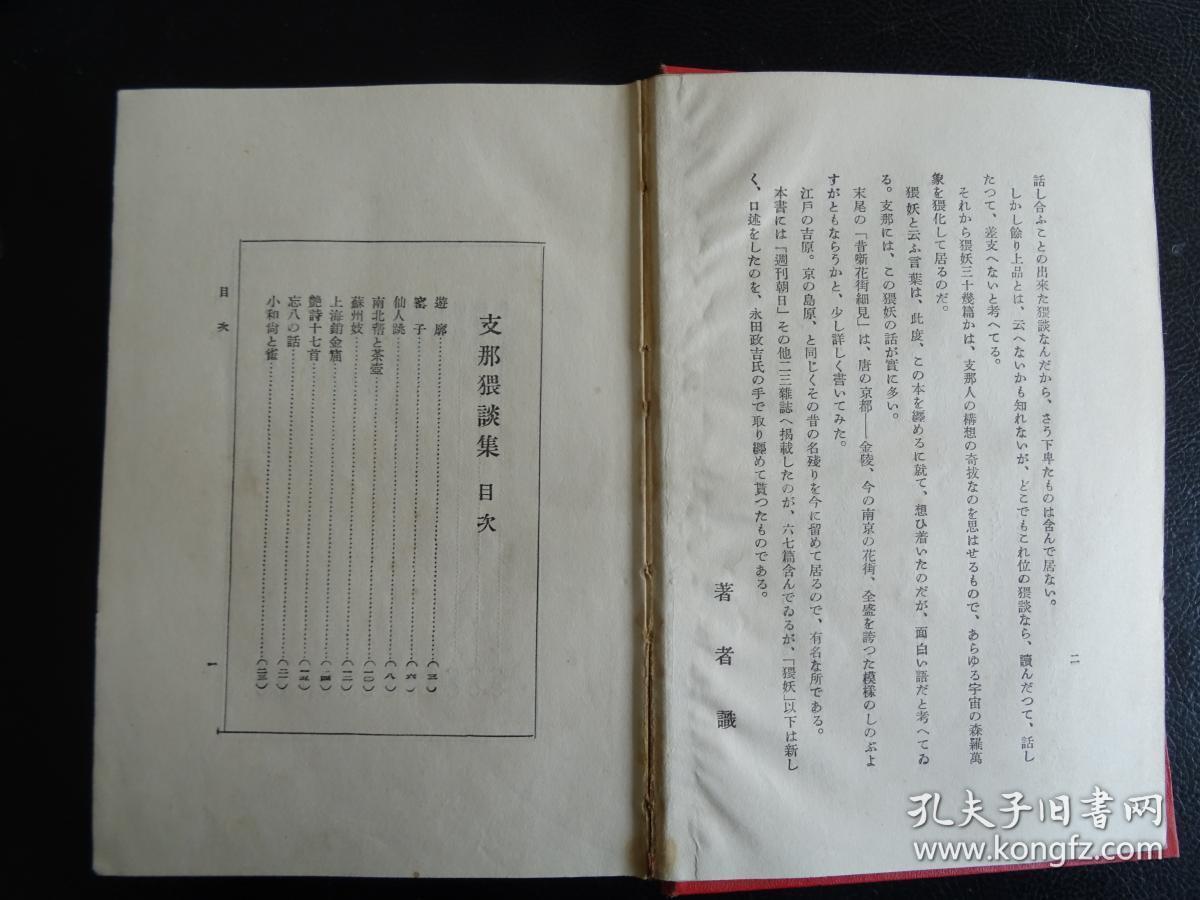 話し合ふことの出來た猥談なんだから、さう下卑たものは含んで居ない。
しかし餘り上品とは、云へないかも知れないが、どこでもこれ位の猥談なら、讀んだつて、話し
たつて、差支へないと考へてる。
それから猥妖三十幾篇かは、支那人の構想の奇拔なのを思はせるもので、あらゆる宇宙の森羅萬
象を猥化して居るのだ。
猥妖と云ふ言葉は、此度、この本を纒めるに就て、想ひ着いたのだが、面白い語だと考へてゐ
る。支那には、この猥妖の話が實に多い。
末尾の「昔噺花街細見」は、唐の京都——金陵、今の南京の花街、全盛を誇つた模樣のしのぶよ
すがともならうかと、少し詳しく書いてみた。
江戸の吉原。京の島原、と同じくその昔の名殘りを今に留めて居るので、有名な所である。
本書には『週刊朝日』その他二三雜誌へ掲載したのが、六七篇含んでゐるが、「猥妖」以下は新し
く、口述をしたのを、永田政吉氏の手で取り纒めて貰つたものである。
著者識
二
支那猥談集 目次
遊廓…………(三)
窰子…………(六)
仙人跳…………(八)
南北蓿と茶壺…………(一〇)
蘇州妓…………(一二)
上海銷金窟…………(一四)
艷詩十七首…………(一五)
忘八の話…………(二一)
小和尙と雀…………(二三)
目次
一
孔夫子旧书网
www.kongfz.com